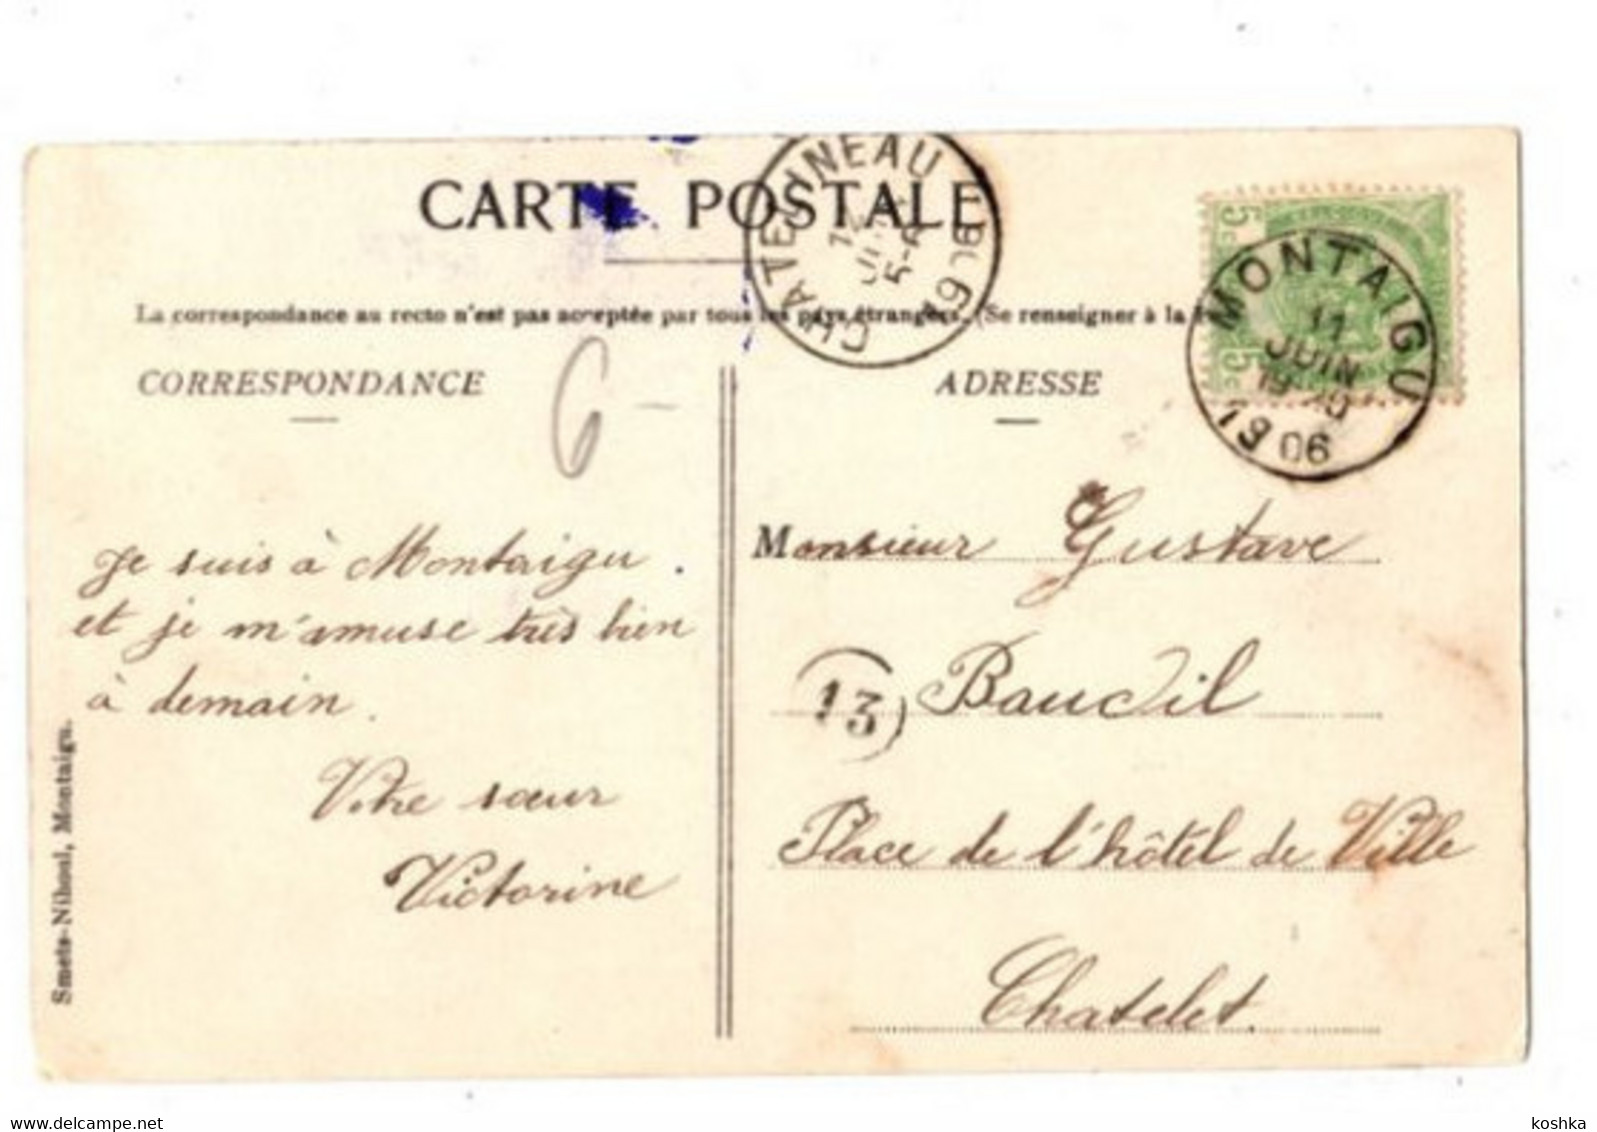 CARTE POSTALE
CHATELINEAU
12
JUIN
5-6
MONTAIGU
11
JUIN
19
06
5 c
5 c
La correspondance au recto n'est pas acceptée par tous les pays étrangers. (Se renseigner à la
CORRESPONDANCE
6 -
Je suis à Montaigu.
et je m'amuse très bien
à demain.
Votre sœur
Victorine
Smets-Nihoul, Montaigu.
ADRESSE
Monsieur Gustave
13
Baudil
Place de l'hôtel de Ville
Chatelet.
koshka